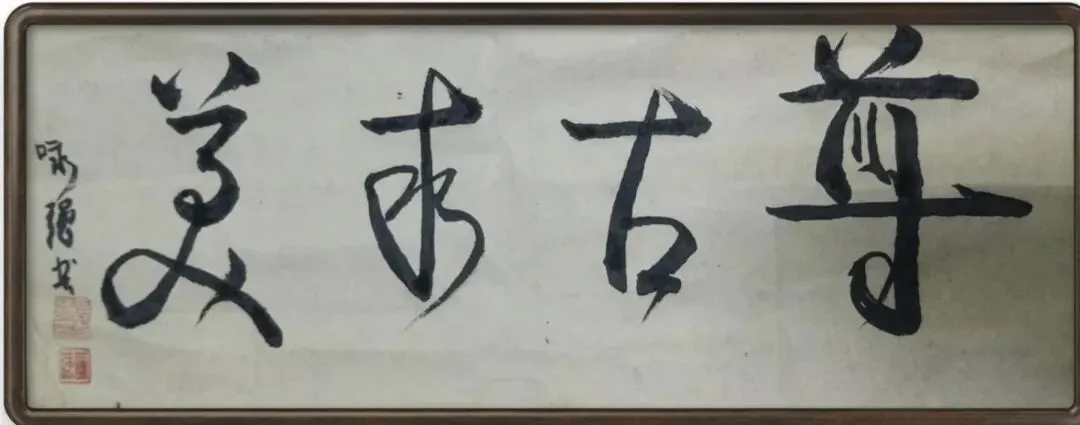 尊古求美
咏强书